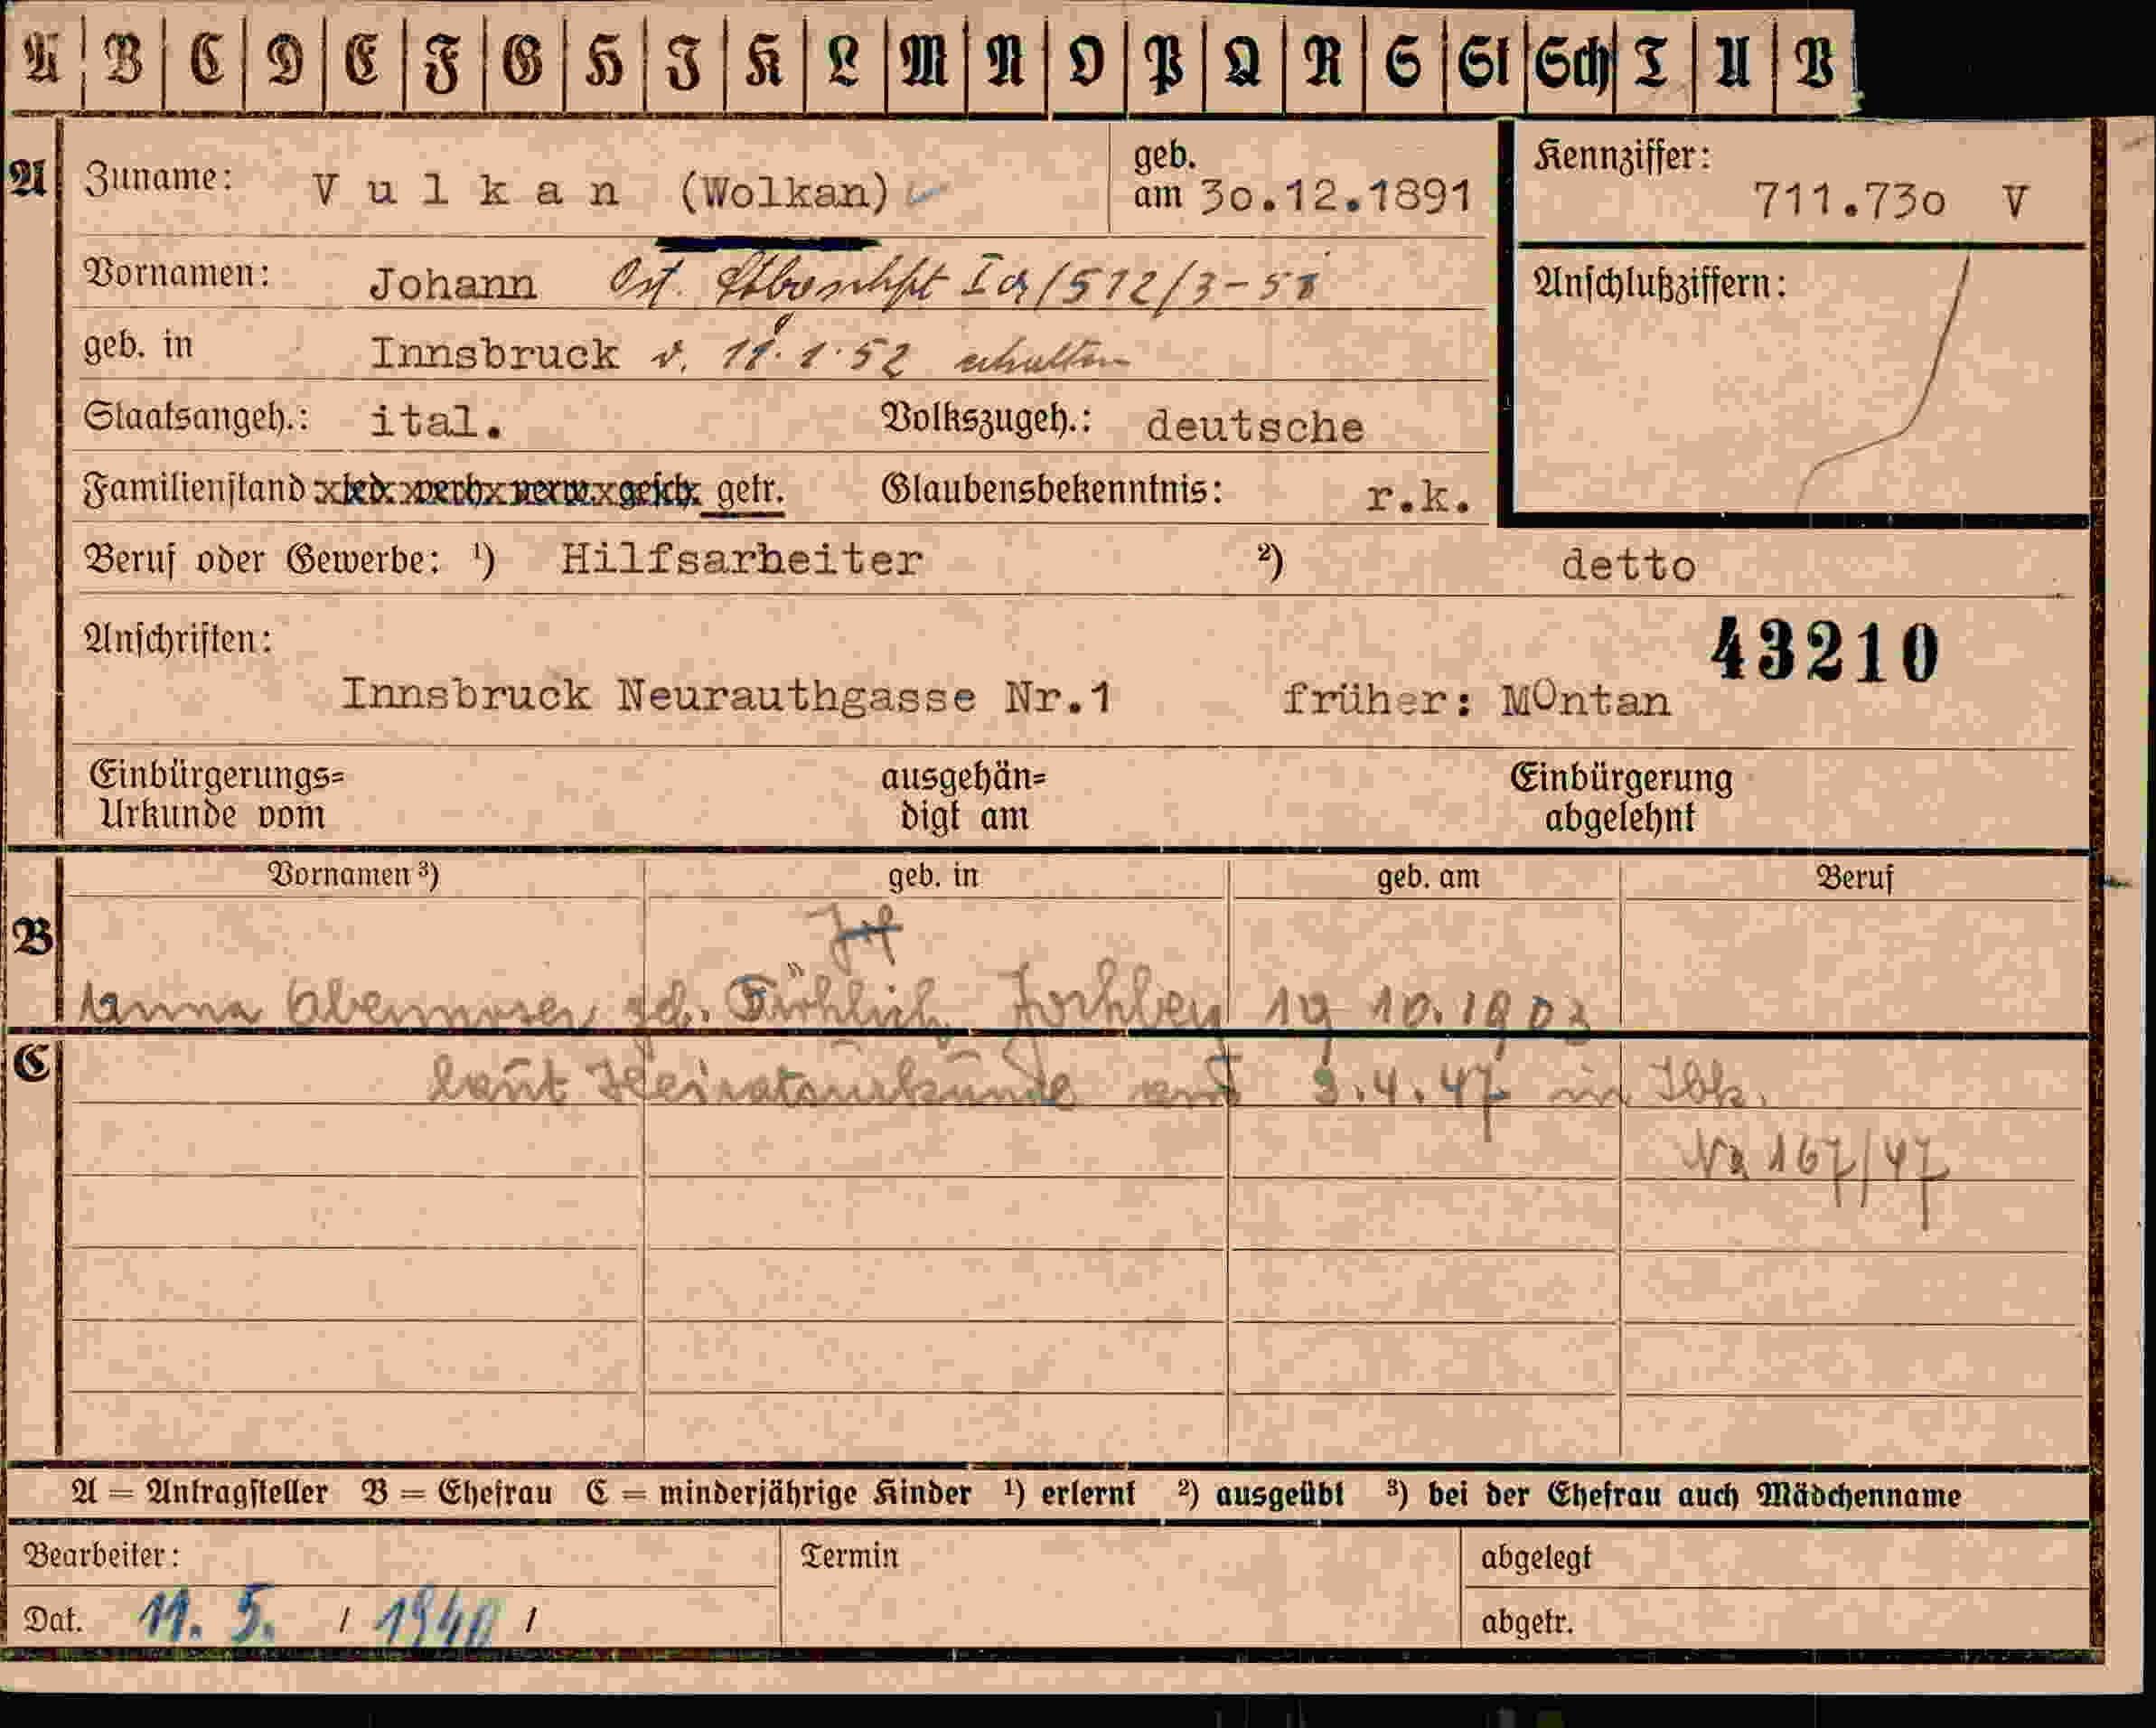 A B C D E F G H I K L M N O P Q R S St Sch T U V
A Zuname: Vulkan (Wolkan) geb. am 30.12.1891 Kennziffer: 711.730 V
Vornamen: Johann Ost. Ia/512/3-51 Anschlußziffern:
geb. in Innsbruck v. 11.1.52 erhalten
Staatsangeh.: ital. Volkszugeh.: deutsche
Familienstand led. verh. verw. gesch. getr. Glaubensbekenntnis: r.k.
Beruf oder Gewerbe: ¹) Hilfsarheiter ²) detto
Anschriften: 43210
Innsbruck Neurauthgasse Nr.1 früher: MOntan
Einbürgerungs= ausgehän= Einbürgerung
Urkunde vom digt am abgelehnt
Vornamen ³) geb. in geb. am Beruf
B
Anna Obermoser geb. Fröhlich Jochberg 19 10.1903
C laut Heiratsurkunde vom 3.4.47 in Ibk.
Nr 167/47
A = Antragsteller B = Ehefrau C = minderjährige Kinder ¹) erlernt ²) ausgeübt ³) bei der Ehefrau auch Mädchenname
Bearbeiter: Termin abgelegt
Dat. 11. 5. / 1940 / abgetr.